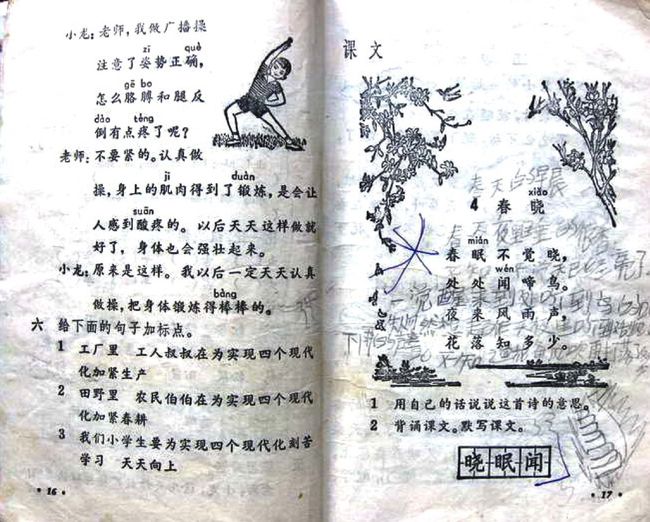 小龙:老师,我做广播操
zī què
注意了姿势正确,
gē bo
怎么胳膊和腿反
dào téng
倒有点疼了呢?
老师:不要紧的。认真做
jī duàn
操,身上的肌肉得到了锻炼,是会让
suān
人感到酸疼的。以后天天这样做就
好了,身体也会强壮起来。
小龙:原来是这样。我以后一定天天认真
bàng
做操,把身体锻炼得棒棒的。
六 给下面的句子加标点。
1 工厂里 工人叔叔在为实现四个现代
化加紧生产
2 田野里 农民伯伯在为实现四个现代
化加紧春耕
3 我们小学生要为实现四个现代化刻苦
学习 天天向上
·16·
课文
春天的早晨
xiǎo
4 春晓
mián
春眠不觉晓,
wén
处处闻啼鸟。
一觉醒来到处听到鸟
夜来风雨声,
花落知多少。
1 用自己的话说说这首诗的意思。
2 背诵课文。默写课文。
晓眠闻
·17·